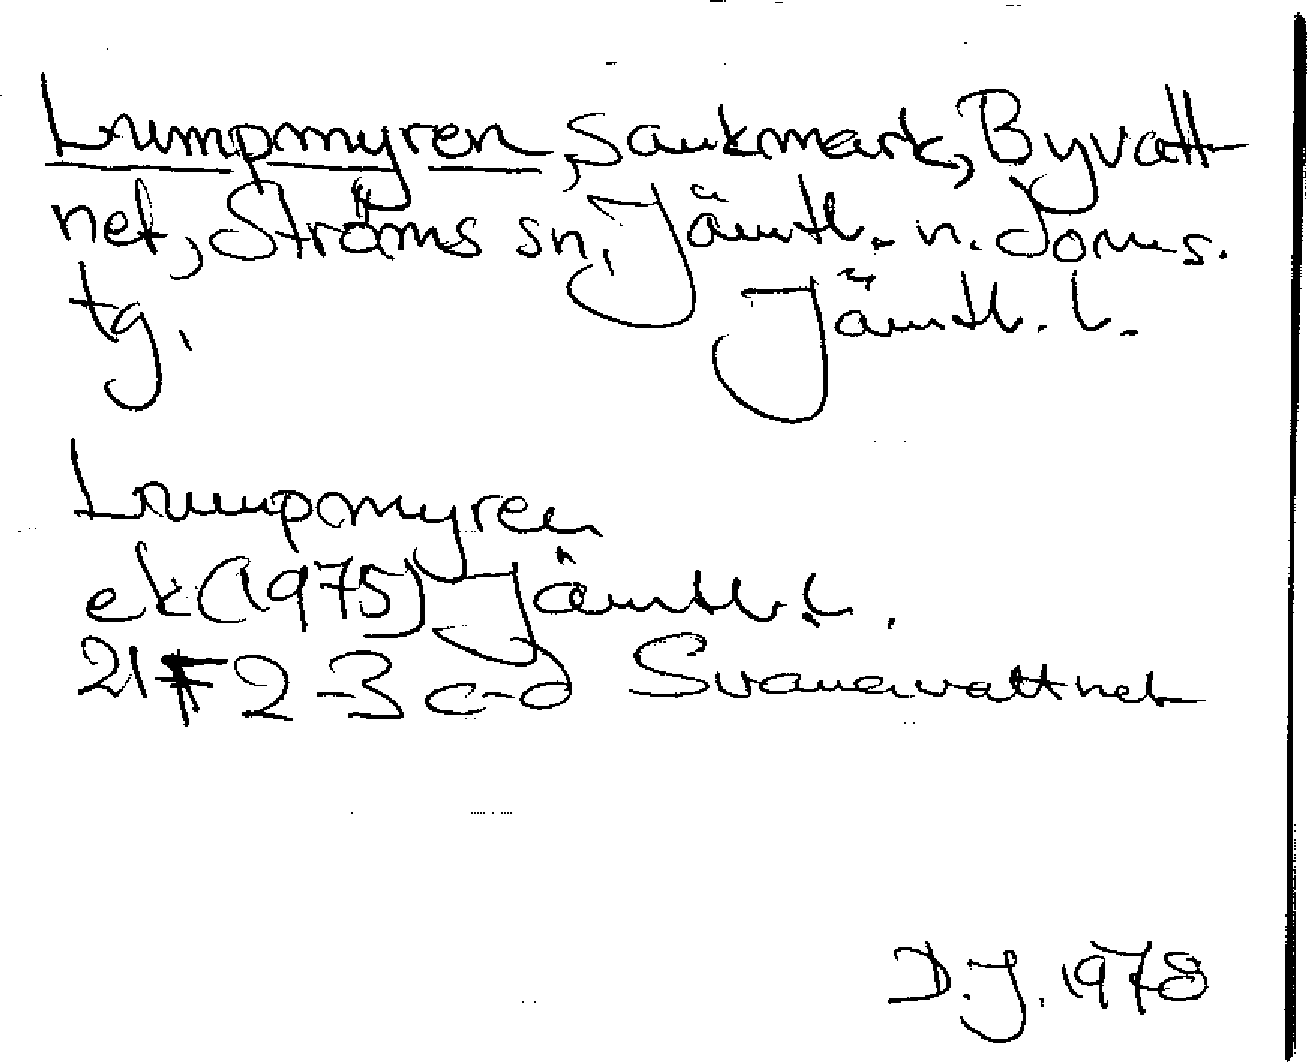 Lrumpmyren, Sankmark, Byvatt-
net, Ströms sn, Jämtl. n. doms.
tg. Jämtl. l.
Lrumpmyren
ek (1975) Jämtl. l.
21F 2-3 c-d Svanavattnet
D.J. 1978